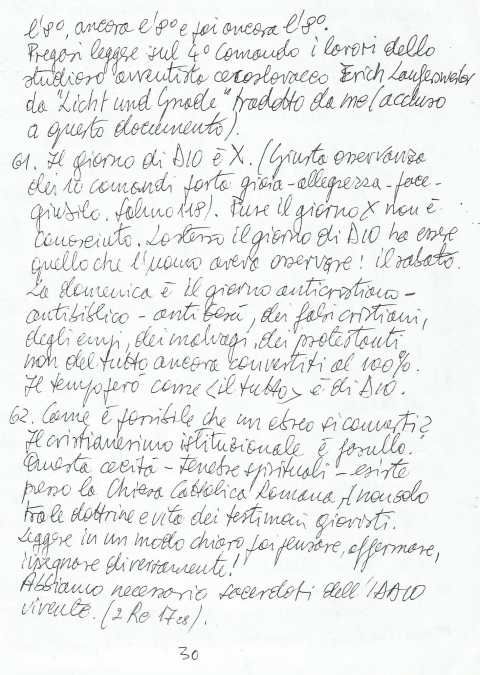 l'8°, ancora l'8° e poi ancora l'8°.
Pregasi leggere sul 4° comando i lavori dello
studioso avventista cecoslovacco Erich
da "Licht und Gnade" tradotto da me (accluso
a questo documento).
61. Il giorno di DIO è X. (Giusta osservanza
dei 10 comandi porta gioia - allegrezza - pace -
giubilo. Salmo 118). Pure il giorno X non è
conosciuto. Lo stesso il giorno di DIO ha essere
quello che l'uomo aveva osservare! il sabato.
La domenica è il giorno anticristiano -
antibiblico - dei falsi cristiani,
degli empi, dei malvagi, dei protestanti
non del tutto ancora convertiti al 100%.
Il tempo però come <il tutto> è di DIO.
62. Come è possibile che un ebreo si converti?
Il cristianesimo istituzionale è fasullo.
Questa cecità - tenebre spirituali - esiste
presso la Chiesa Cattolica Romana, nonsolo
tra le dottrine e vita dei testimoni giovisti.
Leggere in un modo chiaro poi pensare, affermare,
insegnare diversamente!
Abbiamo necessario sacerdoti dell'IDDIO
vivente. (2 Re 17 28).
30